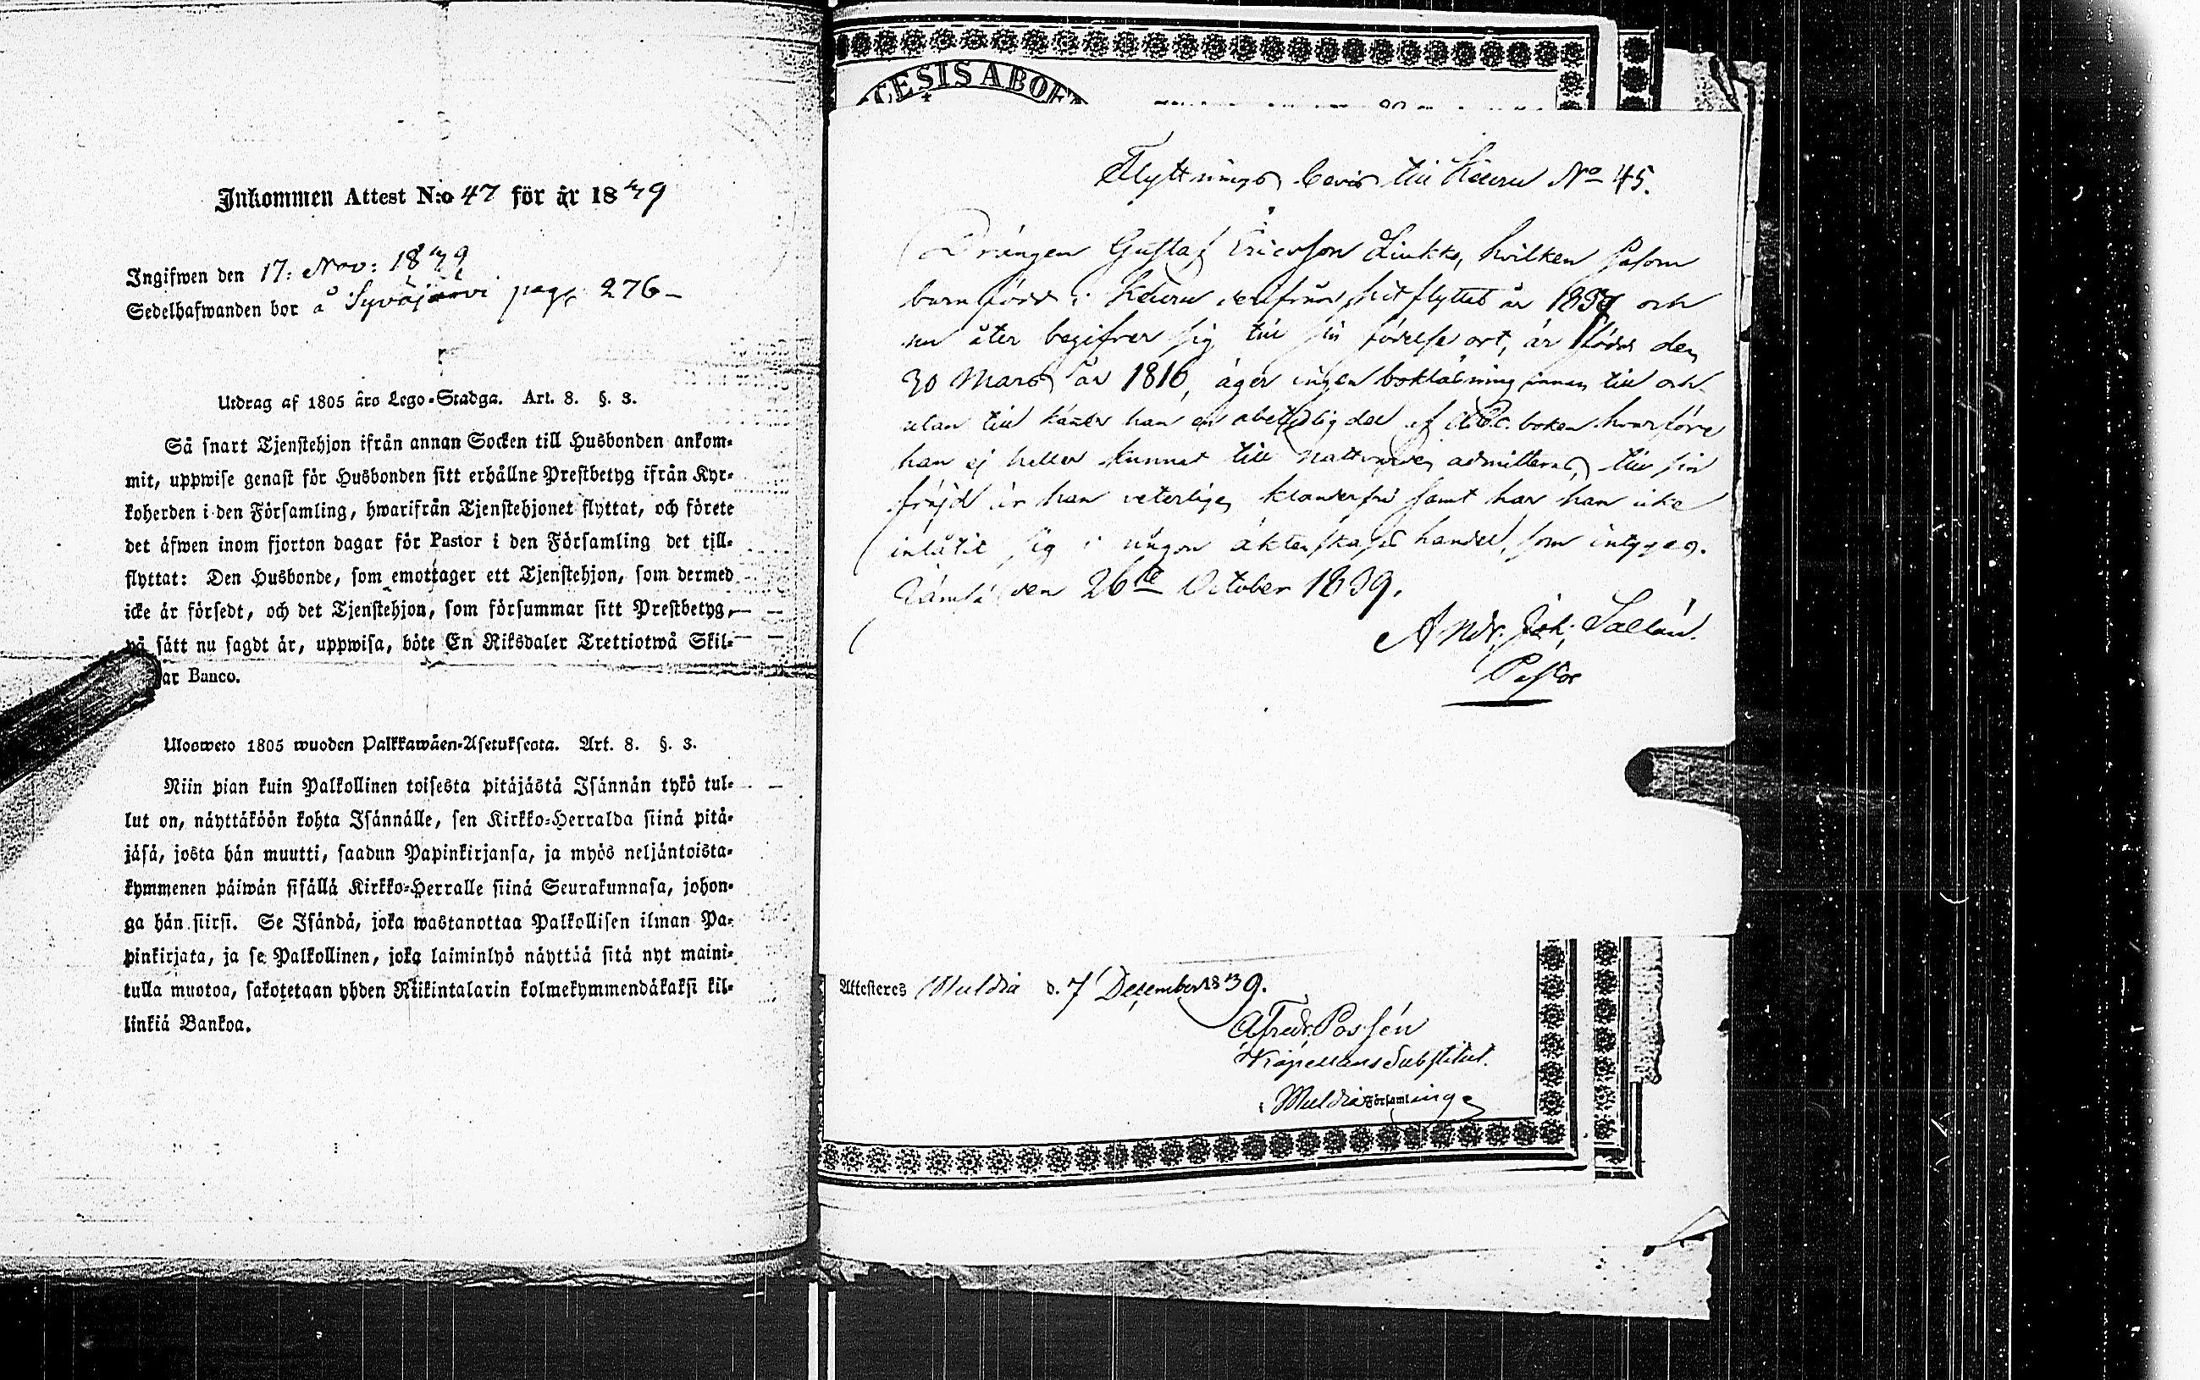 Inkommen Attest N:o 47 för år 1839
Ingifwen den 17: Nov: 1839
Sedelhafwanden bor å Syväjärvi pag. 276
Utdrag af 1805 års Lego-Stadga. Art. 8. §. 3.
Så snart Tjenstehjon ifrån annan Socken till Husbonden ankom-
mit, uppwise genast för Husbonden sitt erhållne Prestbetyg ifrån Kyr-
koherden i den Församling, hwarifrån Tjenstehjonet flyttat, och förete
det äfwen inom fjorton dagar för Pastor i den Församling det till-
flyttat: Den Husbonde, som emottager ett Tjenstehjon, som dermed
icke är försedt, och det Tjenstehjon, som försummar sitt Prestbetyg,
på sätt nu sagdt är, uppwisa, böte En Riksdaler Trettiotwå Skil-
ar Banco.
Ulosweto 1805 wuoden Palkkawäen-Asetuksesta. Art. 8. §. 3.
Niin pian kuin Palkollinen toisesta pitäjästä Isännän tykö tul-
lut on, näyttäköön kohta Isännälle, sen Kirkko-Herralda siinä pitä-
jäsä, josta hän muutti, saadun Papinkirjansa, ja myös neljäntoista-
kymmenen päiwän sisällä Kirkko-Herralle siinä Seurakunnasa, johon-
ga hän siirsi. Se Isändä, joka wastanottaa Palkollisen ilman Pa-
pinkirjata, ja se Palkollinen, joka laiminlyö näyttää sitä nyt maini-
tulla muotoa, sakotetaan yhden Riikintalarin kolmekymmendäkaksi kil-
linkiä Bankoa.
CESIS ABOE
Flyttnings bevis till Keuru No 45.
Drängen Gustaf Ericsson Liukko, hvilken såsom
barn född i Keuru derifrån hit flyttat år 1837 och
nu åter begifver sig till sin födelse ort, är född den
30 Mars år 1816, äger ingen bokläsning innan till och
utan till känner han en obetydlig del af ABC boken hvarföre
han ej heller kunnat till nattvarden admitteras, till sin
fräjd är han veterligen klanderfri samt har han icke
inlåtit sig i någon äktenskaps handel, som intygas.
Jämsä den 26te October 1839.
Andr. Joh. Sallén
Pastor
Attesteres Muldia d. 7 December 1839.
A. Fredr. Possén
Kapellans Substitut.
i Muldia Församling